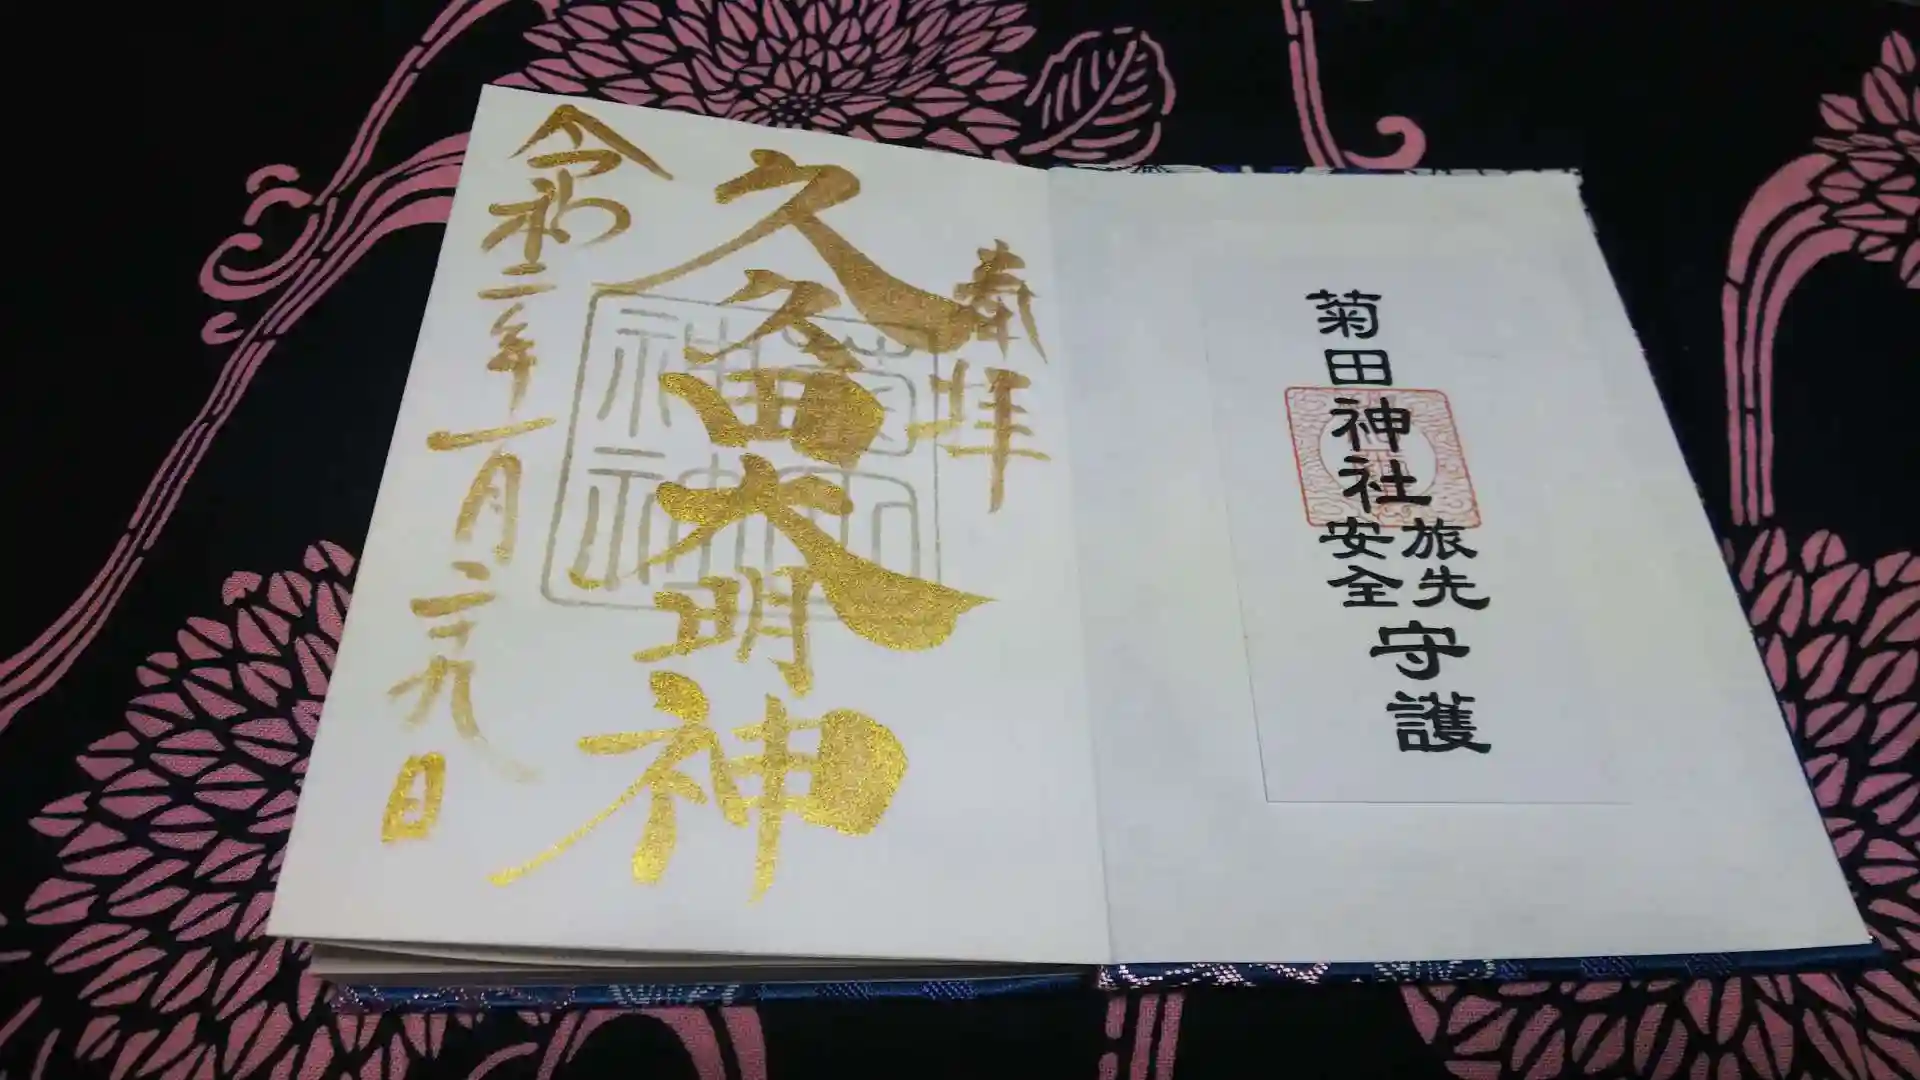 菊田神社
旅先
安全
守護
奉拝
久久田大明神
令和二年一月二十九日